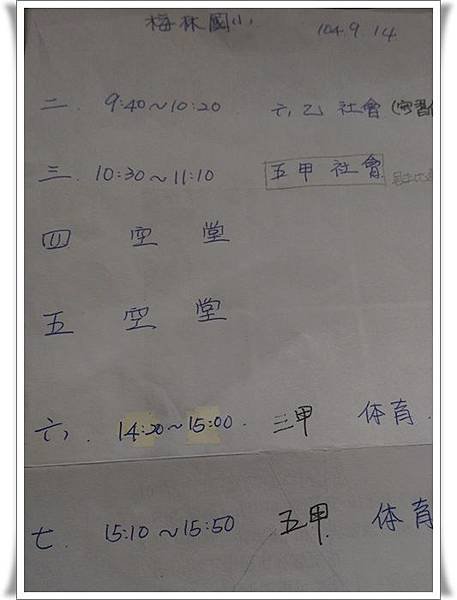 梅林國小 104.9.14
二. 9:40~10:20 六乙 社會(實習
三. 10:30~11:10 五甲 社會
四 空堂
五 空堂
六. 14:20~15:00 三甲 体育.
七 15:10~15:50 五甲 体育